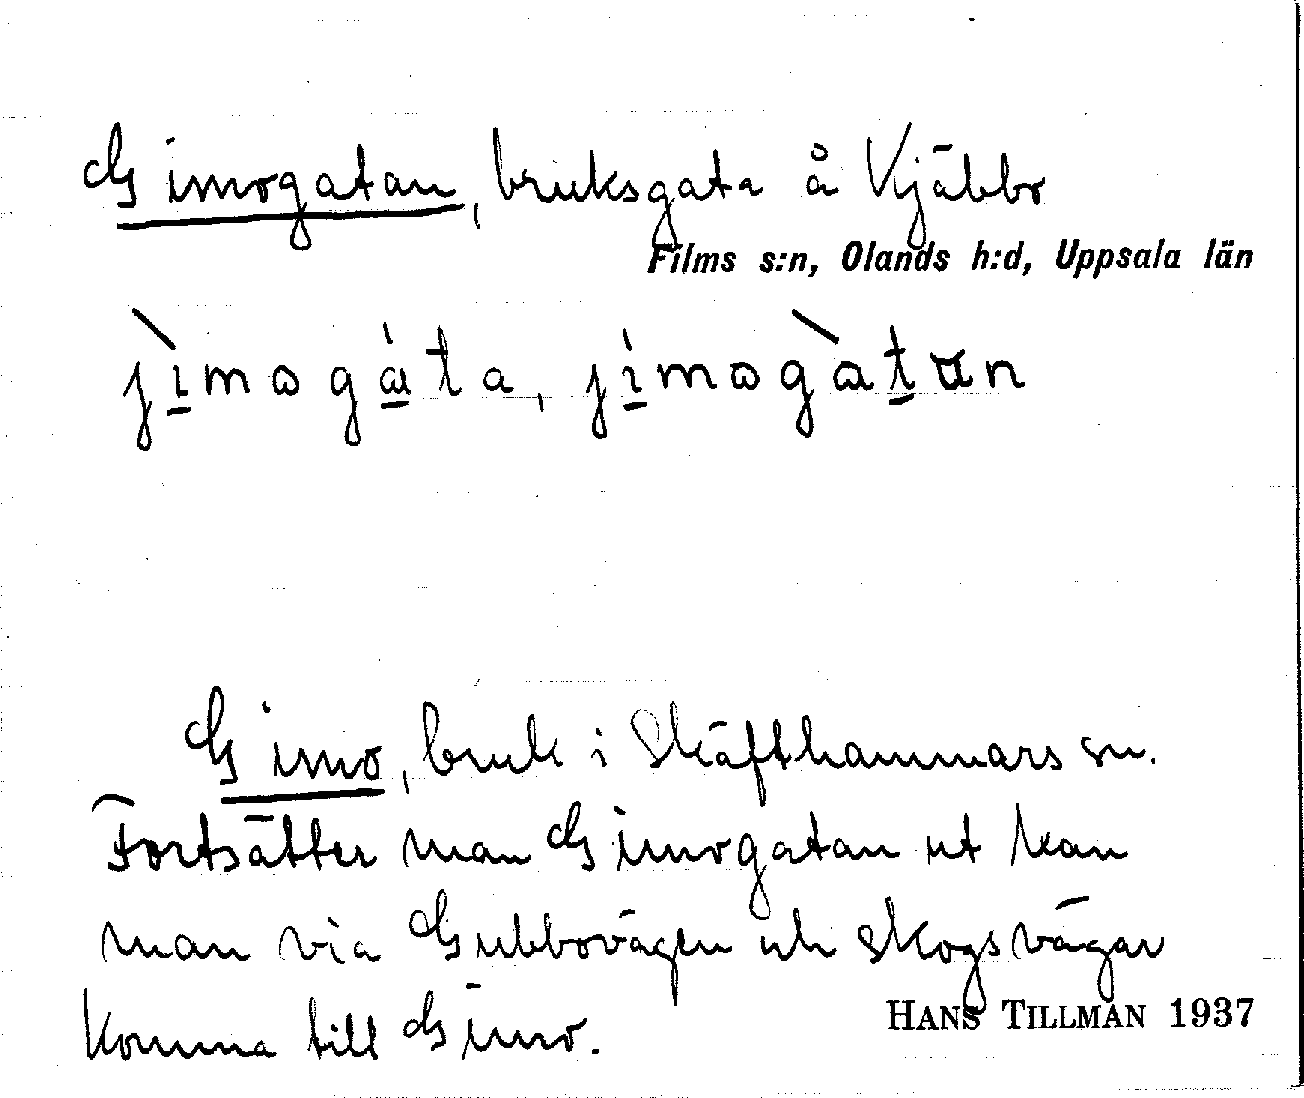 Gimogatan, bruksgata å Kjäbbo
Films s:n, Olands h:d, Uppsala län
jı̀mɷgàta, jı̀mɷgàtan
Gimo, bruk i Skäfthammars sn.
Fortsätter man Gimogatan ut kan
man via Gubbovägen och skogsvägar
komma till Gimo.
HANS TILLMAN 1937